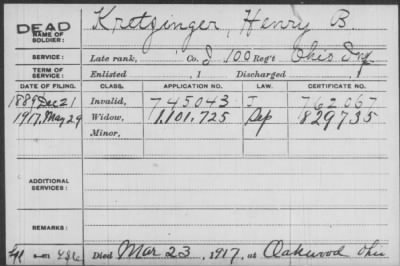 DEAD Kretzinger, Henry B.
NAME OF SOLDIER:
SERVICE: Late rank, Co. I 100 Reg't Ohio Inf
TERM OF SERVICE: Enlisted , 1 Discharged , 1
DATE OF FILING. CLASS. APPLICATION NO. LAW. CERTIFICATE NO.
1889 Dec 21 Invalid, 745043 J 762.067
1917, May 29 Widow, 1.101.725 Sep 829735
Minor,
ADDITIONAL SERVICES:
REMARKS:
Died Mar 23, 1917, at Oakwood Ohio